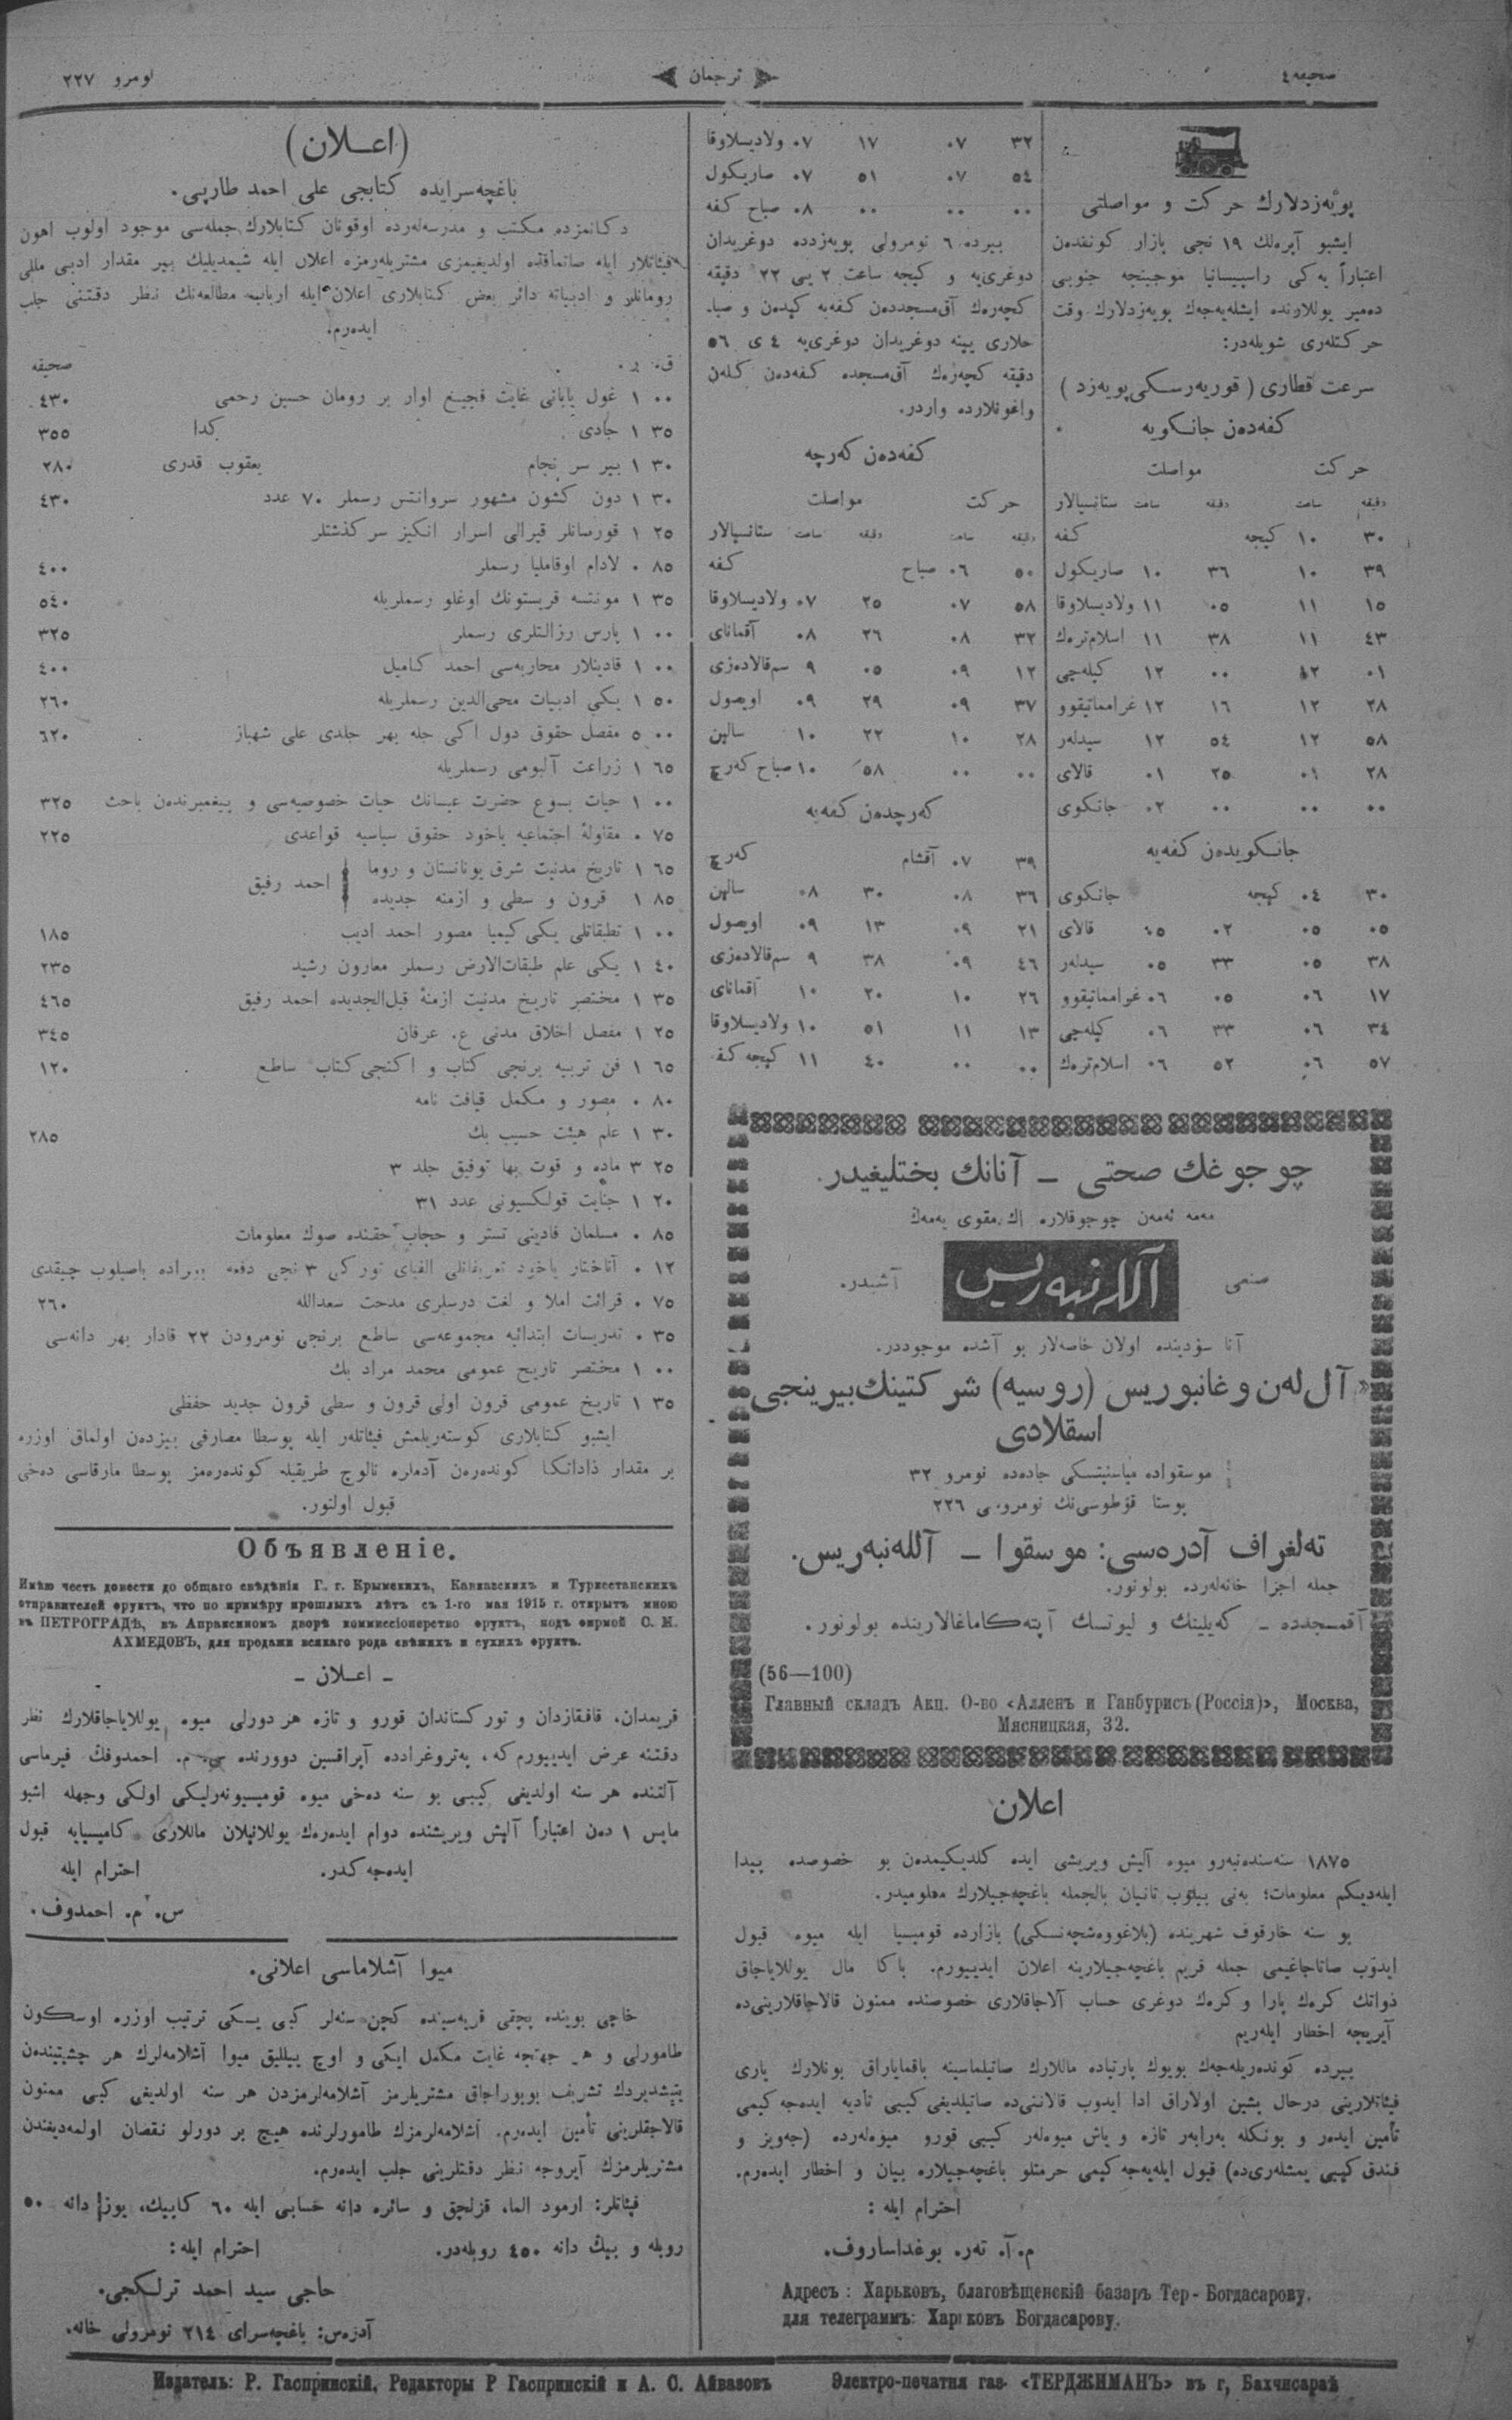 صحیفه ٤
ترجمان
نومرو ٢٢٧
پویه‌زدلارك حركت و مواصلتی
ایشبو آپره‌لك ١٩ نجی بازار كونندەن
اعتباراً یه‌كی راسپیسانیا موجبنجه جنوبی
دەمیر یوللارنده ایشله‌یه‌جه‌ك پویه‌زدلارك وقت
حركتله‌ری شویله‌در:
سرعت قطاری ( قوریه‌رسكی پویه‌زد )
كفه‌دەن جانكویه
حركت مواصلت
دقیقه ساعت دقیقه ساعت ستانسیالار
٣٠ ١٠ كیجه كفه
٣٩ ١٠ ٣٦ ١٠ صاریكول
١٥ ١١ ٠٥ ١١ ولادیسلاوقا
٤٣ ١١ ٣٨ ١١ اسلام‌ترەك
٠١ ١٢ ٠٠ ١٢ كیله‌چی
٢٨ ١٢ ١٦ ١٢ غرامماتیقوو
٥٨ ١٢ ٥٤ ١٢ سیدلەر
٢٨ ٠١ ٢٥ ٠١ قالای
٠٠ ٠٠ ٠٠ ٠٢ جانكوی
جانكویدەن كفه‌یه
٣٠ ٠٤ كیجه جانكوی
٠٥ ٠٥ ٠٢ ٠٥ قالای
٣٨ ٠٥ ٣٣ ٠٥ سیدلەر
١٧ ٠٦ ٠٥ ٠٦ غرامماتیقوو
٣٤ ٠٦ ٣٣ ٠٦ كیله‌چی
٥٧ ٠٦ ٥٢ ٠٦ اسلام‌ترەك
٣٢ ٠٧ ١٧ ٠٧ ولادیسلاوقا
٥٤ ٠٧ ٥١ ٠٧ صاریكول
٠٠ ٠٠ ٠٠ ٠٨ صباح كفه
بیرده ٦ نومرولی پویه‌زدده دوغریدان
دوغری‌یه و كیجه ساعت ٢ یی ٢٢ دقیقه
كچه‌رەك آق‌مسجددەن كفه‌یه كیدەن و صبا-
حلاری یینه دوغریدان دوغری‌یه ٤ ی ٥٦
دقیقه كچه‌رەك آق‌مسجده كفه‌دەن كله‌ن
واغونلارده واردر.
كفه‌دەن كه‌رچه
حركت مواصلت
دقیقه ساعت دقیقه ساعت ستانسیالار
٥٠ ٠٦ صباح كفه
٥٨ ٠٧ ٢٥ ٠٧ ولادیسلاوقا
٣٢ ٠٨ ٢٦ ٠٨ آقمانای
١٢ ٠٩ ٠٥ ٩ سم‌قالادەزی
٣٧ ٠٩ ٢٩ ٠٩ اویصول
٢٨ ١٠ ٢٢ ١٠ سالین
٠٠ ٠٠ ٥٨ ١٠ صباح كه‌رچ
كه‌رچدەن كفه‌یه
٣٩ ٠٧ آقشام كه‌رچ
٣٦ ٠٨ ٣٠ ٠٨ سالین
٢١ ٠٩ ١٣ ٠٩ اویصول
٤٦ ٠٩ ٣٨ ٩ سم‌قالادەزی
٢٦ ١٠ ٢٠ ١٠ آقمانای
١٣ ١١ ٥١ ١٠ ولادیسلاوقا
٠٠ ٠٠ ٤٠ ١١ كیجه كفه
چوجوغك صحتی – آنانك بختلیغیدر.
مه‌مه ئه‌مه‌ن چوجوقلاره اك مقوی یه‌مه‌ك
صنعی آللەنبه‌ریس آشیدر.
آنا سؤدینده اولان خاصه‌لار بو آشده موجوددر.
«آل‌له‌ن و غانبوریس (روسیه) شركتینك بیرینجی
اسقلادی
موسقواده میاسنیتسكی جادەده نومرو ٣٢
پوستا قؤطوسی‌نك نومروسی ٢٢٦
ته‌لغراف آدرەسی: موسقوا – آلله‌نبه‌ریس.
جمله اجزا خانه‌له‌رده بولونور.
آقمسجدده – كه‌یلینك و لیوتسك آپته‌كاماغالارینده بولونور.
(56—100)
Главный складъ Акц. О-во «Алленъ и Ганбурисъ (Россія)», Москва,
Мясницкая, 32.
اعلان
١٨٧٥ سنه‌سندەنبه‌رو میوه آلیش ویریشی ایده كلدیكیمدەن بو خصوصده پیدا
ایله‌دیكم معلومات؛ به‌نی بیلۆب تانیان بالجمله باغچه‌جیلارك معلومیدر.
بو سنه خارقوف شهرینده (بلاغووەشچه‌نسكی) بازارده قومیسیا ایله میوه قبول
ایدۆب صاتاجاغیمی جمله قریم باغچه‌جیلارینه اعلان ایدییورم. باكا مال یوللایاجاق
ذواتك كرەك پارا و كرەك دوغری حساب آلاجاقلاری خصوصنده ممنون قالاجاقلارینی‌ده
آیریجه اخطار ایله‌ریم
بیرده كوندەریله‌جه‌ك بویوك پارتیاده ماللارك صاتیلماسینه باقمایاراق بونلارك یاری
فیئاتلارینی درحال پشین اولاراق ادا ایدوب قالاننی‌ده صاتیلدیغی كیبی تأدیه ایدەجه‌كیمی
تأمین ایدەر و بونكله به‌رابه‌ر تازه و یاش میوه‌له‌ر كیبی قورو میوه‌له‌رده (جه‌ویز و
فندق كیبی یمشله‌ری‌ده) قبول ایله‌یه‌جه‌كیمی حرمتلو باغچه‌جیلاره بیان و اخطار ایدەرم.
احترام ایله :
م. آ. ته‌ر. بوغداساروف.
Адресъ : Харьковъ, благовѣщенскій базаръ Тер-Богдасарову.
для телеграммъ: Харьковъ Богдасарову.
(اعـلان)
باغچه‌سرایده كتابجی علی احمد طارپی.
دكانمزده مكتب و مدرسه‌له‌رده اوقونان كتابلارك جمله‌سی موجود اولوب اهون
فیئاتلار ایله صاتماقده اولدیغیمزی مشتریله‌رمزه اعلان ایله شیمدیلیك بیر مقدار ادبی مللی
رومانلر و ادبیاته دائر بعض كتابلاری اعلان ایله اربابه مطالعه‌نك نظر دقتنی جلب
ایدەرم.
ق. ر. صحیفه
٠٠ ١ غول یابانی غایت فجیع اوار بر رومان حسین رحمی ٤٣٠
٣٥ ١ جادی كدا ٣٥٥
٣٠ ١ بیر سر نجام یعقوب قدری ٢٨٠
٣٠ ١ دون كشون مشهور سروانتس رسملر ٧٠ عدد ٤٣٠
٢٥ ١ قورسانلر قیرالی اسرار انكیز سركذشتلر
٨٥ ٠ لادام اوقاملیا رسملر ٤٠٠
٣٥ ١ مونتسه قریستونك اوغلو رسملریله ٥٤٠
٠٠ ١ پارس رزالتلری رسملر ٣٢٥
٠٠ ١ قادینلار محاربه‌سی احمد كامیل ٤٠٠
٥٠ ١ یكی ادبیات محی‌الدین رسملریله ٢٦٠
٠٠ ٥ مفصل حقوق دول اكی جله بهر جلدی علی شهباز ٦٢٠
٦٥ ١ زراعت آلبومی رسملریله
٠٠ ١ حیات یسوع حضرت عیسانك حیات خصوصیه‌سی و پیغمبرندەن باحث ٣٢٥
٧٥ ٠ مقاولۀ اجتماعیه یاخود حقوق سیاسیه قواعدی ٢٢٥
٦٥ ١ تاریخ مدنیت شرق یونانستان و روما
٨٥ ١ قرون و سطی و ازمنه جدیده احمد رفیق
٠٠ ١ تطبقاتلی یكی كیمیا مصور احمد ادیب ١٨٥
٤٠ ١ یكی علم طبقات‌الارض رسملر معارون رشید ٢٣٥
٣٥ ١ مختصر تاریخ مدنیت ازمنۀ قبل‌الجدیده احمد رفیق ٤٦٥
٢٥ ١ مفصل اخلاق مدنی ع. عرفان ٣٤٥
٦٥ ١ فن تربیه برنجی كتاب و اكنجی كتاب ساطع ١٢٠
٨٠ ٠ مصور و مكمل قیافت نامه
٣٠ ١ علم هیئت حسیب بك ٢٨٥
٢٥ ٣ ماده و قوت بها توفیق جلد ٣
٢٠ ١ جنایت قولكسیونی عدد ٣١
٨٥ ٠ مسلمان قادینی تستر و حجاب حقنده صوك معلومات
١٢ ٠ آناختار یاخود تعریفاتلی الفبای توركی ٣ نجی دفعه باصیلوب چیقدی
٧٥ ٠ قرائت املا و لغت درسلری مدحت سعدالله ٢٦٠
٣٥ ٠ تدریسات ابتدائیه مجموعه‌سی ساطع برنجی نومرودن ٢٢ قادار بهر دانه‌سی
٠٠ ١ مختصر تاریخ عمومی محمد مراد بك
٣٥ ١ تاریخ عمومی قرون اولی قرون و سطی قرون جدید حفظی
ایشبو كتابلاری كوستەریلمش فیئاتلەر ایله پوسطا مصارفی بیزدەن اولماق اوزره
بر مقدار ذاداتكا كوندەرەن آدملره نالوج طریقیله كوندەرەمز پوسطا مارقاسی دەخی
قبول اولنور.
Объявленіе.
Имѣю честь довести до общаго свѣдѣнія Г. г. Крымскихъ, Кавказскихъ и Туркестанскихъ
отправителей фруктъ, что по примѣру прошлыхъ лѣтъ съ 1-го мая 1915 г. открытъ мною
въ ПЕТРОГРАДѢ, въ Апраксиномъ дворѣ коммиссіонерство фруктъ, подъ фирмой С. М.
АХМЕДОВЪ, для продажи всякаго рода свѣжихъ и сухихъ фруктъ.
– اعـلان –
قریمدان، قافقازدان و توركستاندان قورو و تازه هر دورلی میوه یوللایاجاقلارك نظر
دقتنه عرض ایدییورم كه، پەتروغرادده آپراقسین دوورنده س. م. احمدوفڭ فیرماسی
آلتنده هر سنه اولدیغی كیبی بو سنه دەخی میوه قومیسیونه‌رلیكی اولكی وجهله اشبو
مایس ١ دەن اعتباراً آلیش ویریشنده دوام ایدەرەك یوللانیلان ماللاری كامیسیایه قبول
ایدەجه‌كدر. احترام ایله
س. م. احمدوف.
میوا آشلاماسی اعلانی.
خاچی بوینده بچقی قریه‌سینده كچن سنه‌لر كبی یسكی ترتیب اوزره اوسكون
طامورلی و هر جهتجه غایت مكمل ایكی و اوچ ییللیق میوا آشلامه‌لرك هر چشیتیندەن
یتیشدیردك تشریف بویوراجاق مشتریلرمز آشلامه‌لرمزدن هر سنه اولدیغی كبی ممنون
قالاجقلرینی تأمین ایدەرم. آشلامه‌لرمزك طامورلرنده هیچ بر دورلو نقصان اولمه‌دیغندن
مشتریلرمزك آیروجه نظر دقتلرینی جلب ایدەرم.
فیئاتلر: ارمود الما، قزلچق و سائره دانه حسابی ایله ٦٠ كاپیك، یوز دانه ٥٠
روبله و بیڭ دانه ٤٥٠ روبله‌در. احترام ایله:
حاجی سید احمد ترلكجی.
آدرەس: باغچه‌سرای ٢١٤ نومرولی خانه.
Издатель: Р. Гаспринскій, Редакторы Р Гаспринскій и А. С. Айвазовъ Электро-печатня газ. «ТЕРДЖИМАНЪ» въ г, Бахчисараѣ